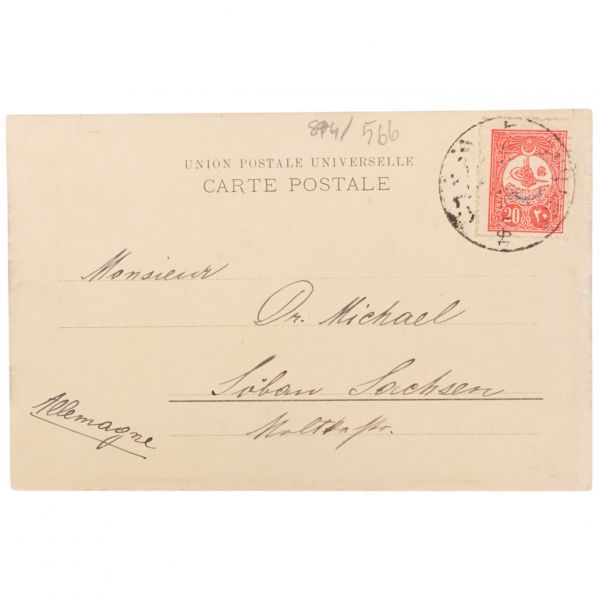 874/ 566
UNION POSTALE UNIVERSELLE
CARTE POSTALE
20 ٢٠
Monsieur
Dr. Michael
Löbau Sachsen
Allemagne
Moltkestr.